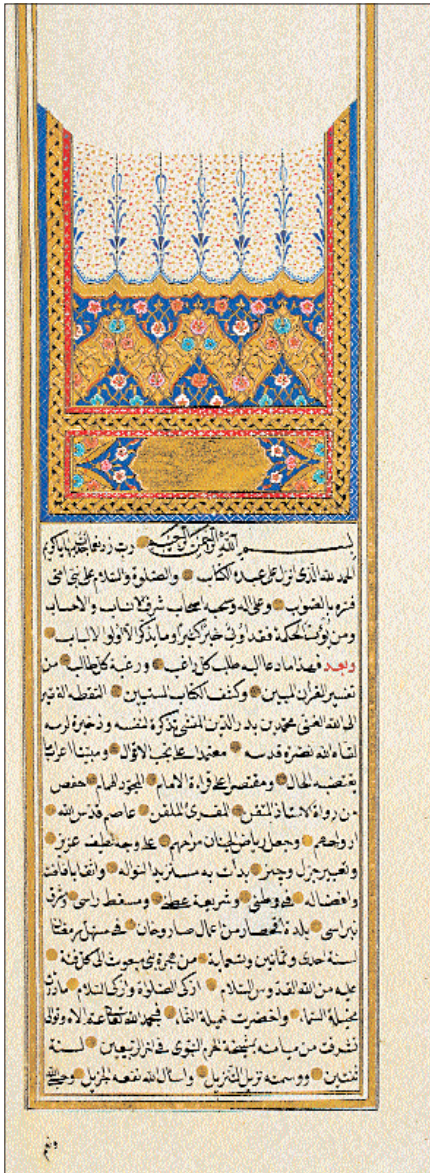 بسم الله الرحمن الرحيم رب زدني علما
الحمد لله الذي انزل على عبده الكتاب والصلوة والسلام على نبي اتى
فنزه بالصواب وعلى اله وصحبه اصحاب شرف الانساب والاحساب
ومن يؤت الحكمة فقد اوتي خيرا كثيرا وما يذكر الا اولوا الالباب
وبعد فهذا ما دعا اليه طلب كل راغب ورغبة كل طالب من
تفسير القران المبين وكشف الكتاب المستبين التقطه الفقير
الى الله الغني محمد بن بدر الدين المنشي تذكرة لنفسه وذخيرة لرمسه
لقاه الله نضرة قدسه معتمدا على نخب الاقوال ومبينا اعراب ما
يقتضيه الحال ومقتصرا على قراءة الامام المجود الهمام حفص
من رواة الاستاذ المتقن المقرئ الملقن عاصم قدس الله
ارواحهم وجعل رياض الجنان مراحهم على وجه لطيف عزيز
وتعبير جزل وجيز بدات به مستزيدا نواله
وافضاله في وطني وشريعة عطني ومسقط راسي
نبراسي بلدة اقحصار من اعمال صاروخان في مستهل
لسنة احدى وثمانين وتسعماية من هجرة نبي مبعوث الى كل فئة
عليه من الله القدوس السلام ازكى الصلوة وازكى السلام
مخيلة السماء واخضرت خميلة فحمد الله
تشرفت من ميامنه بمشيخة الحرم النبوي في اخر الربيعين لسنة
ثنتين ووسمته نزيل التنزيل واسال الله نفعه الجزيل